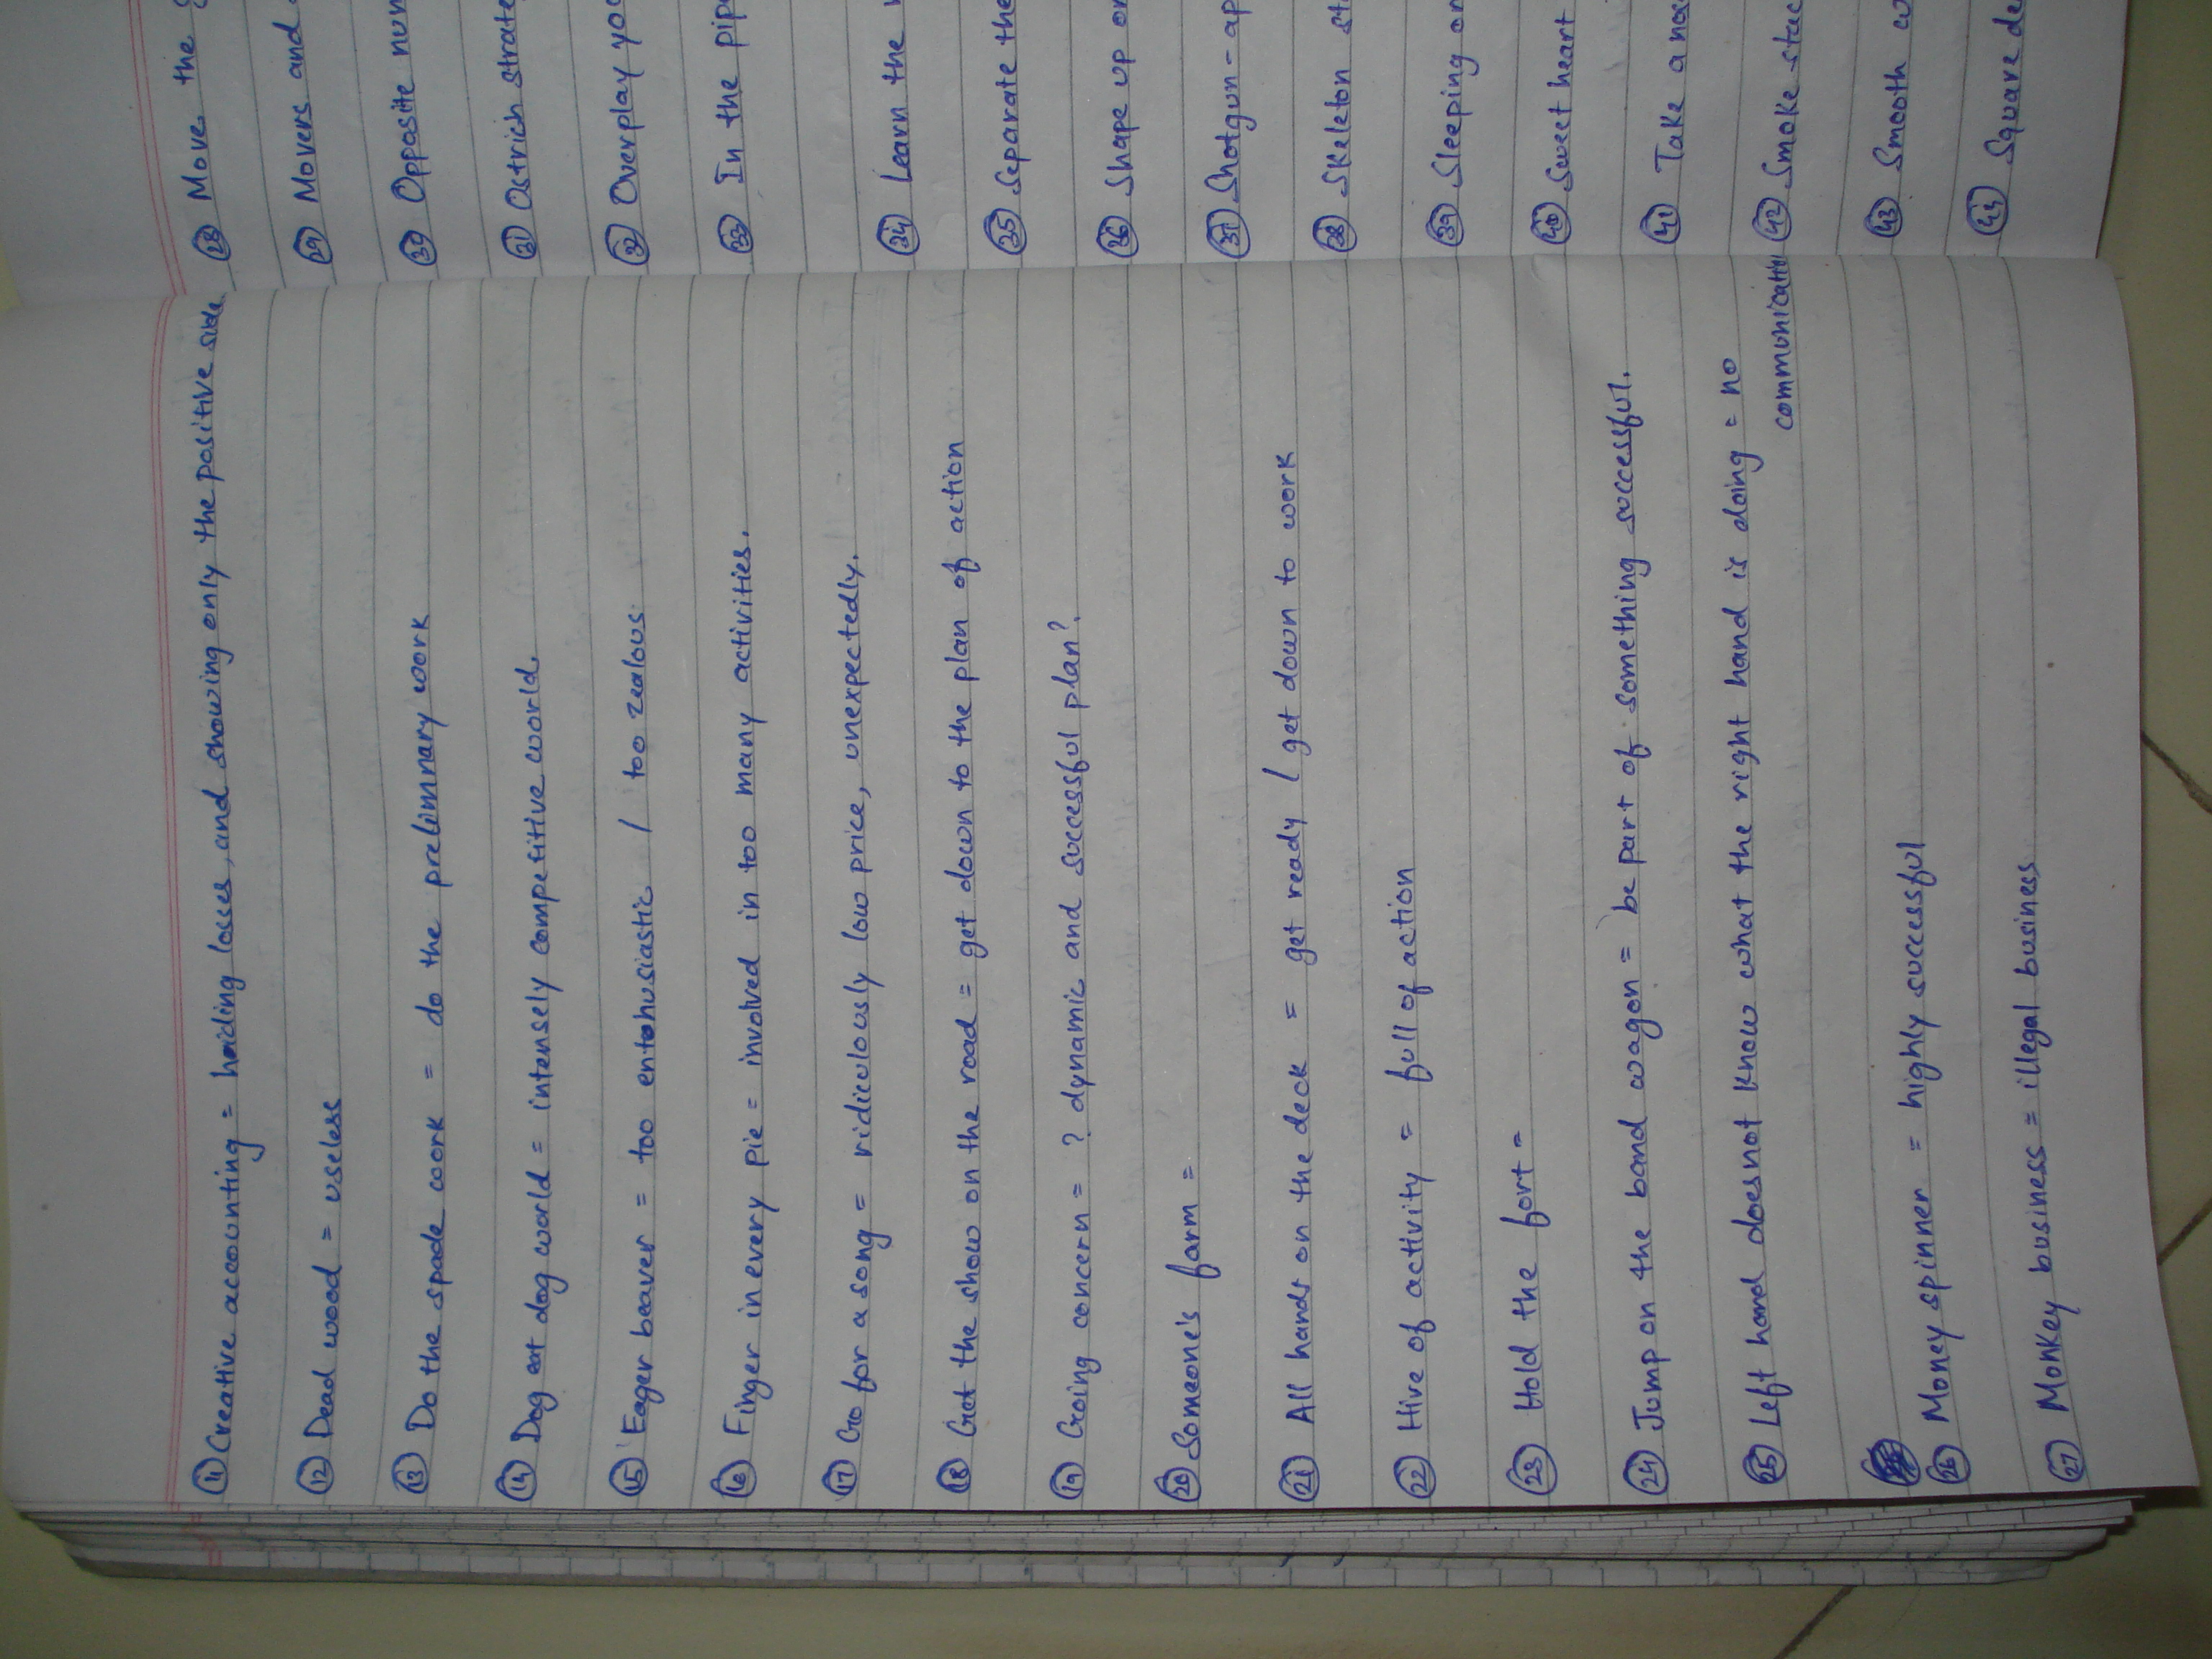 11 Creative accounting = hiding losses, and showing only the positive side.
12 Dead wood = useless
13 Do the spade work = do the prelimnary work
14 Dog eat dog world = intensely competitive world.
15 Eager beaver = too enthusiastic / too zealous
16 Finger in every pie = involved in too many activities.
17 Go for a song = ridiculously low price, unexpectedly.
18 Get the show on the road = get down to the plan of action
19 Going concern = ? dynamic and successful plan?
20 Someone's farm =
21 All hands on the deck = get ready / get down to work
22 Hive of activity = full of action
23 Hold the fort =
24 Jump on the band wagon = be part of something successful.
25 Left hand doesnot know what the right hand is doing = no
communication
26 Money spinner = highly successful
27 Monkey business = illegal business
28 Move the
29 Movers and
30 Opposite num
31 Ostrich strate
32 Overplay yo
33 In the pip
34 Learn the
35 Separate the
36 Shape up or
37 Shotgun - ap
38 Skeleton st
39 Sleeping
40 Sweet heart
41 Take a
42 Smoke stac
43 Smooth
44 Square de